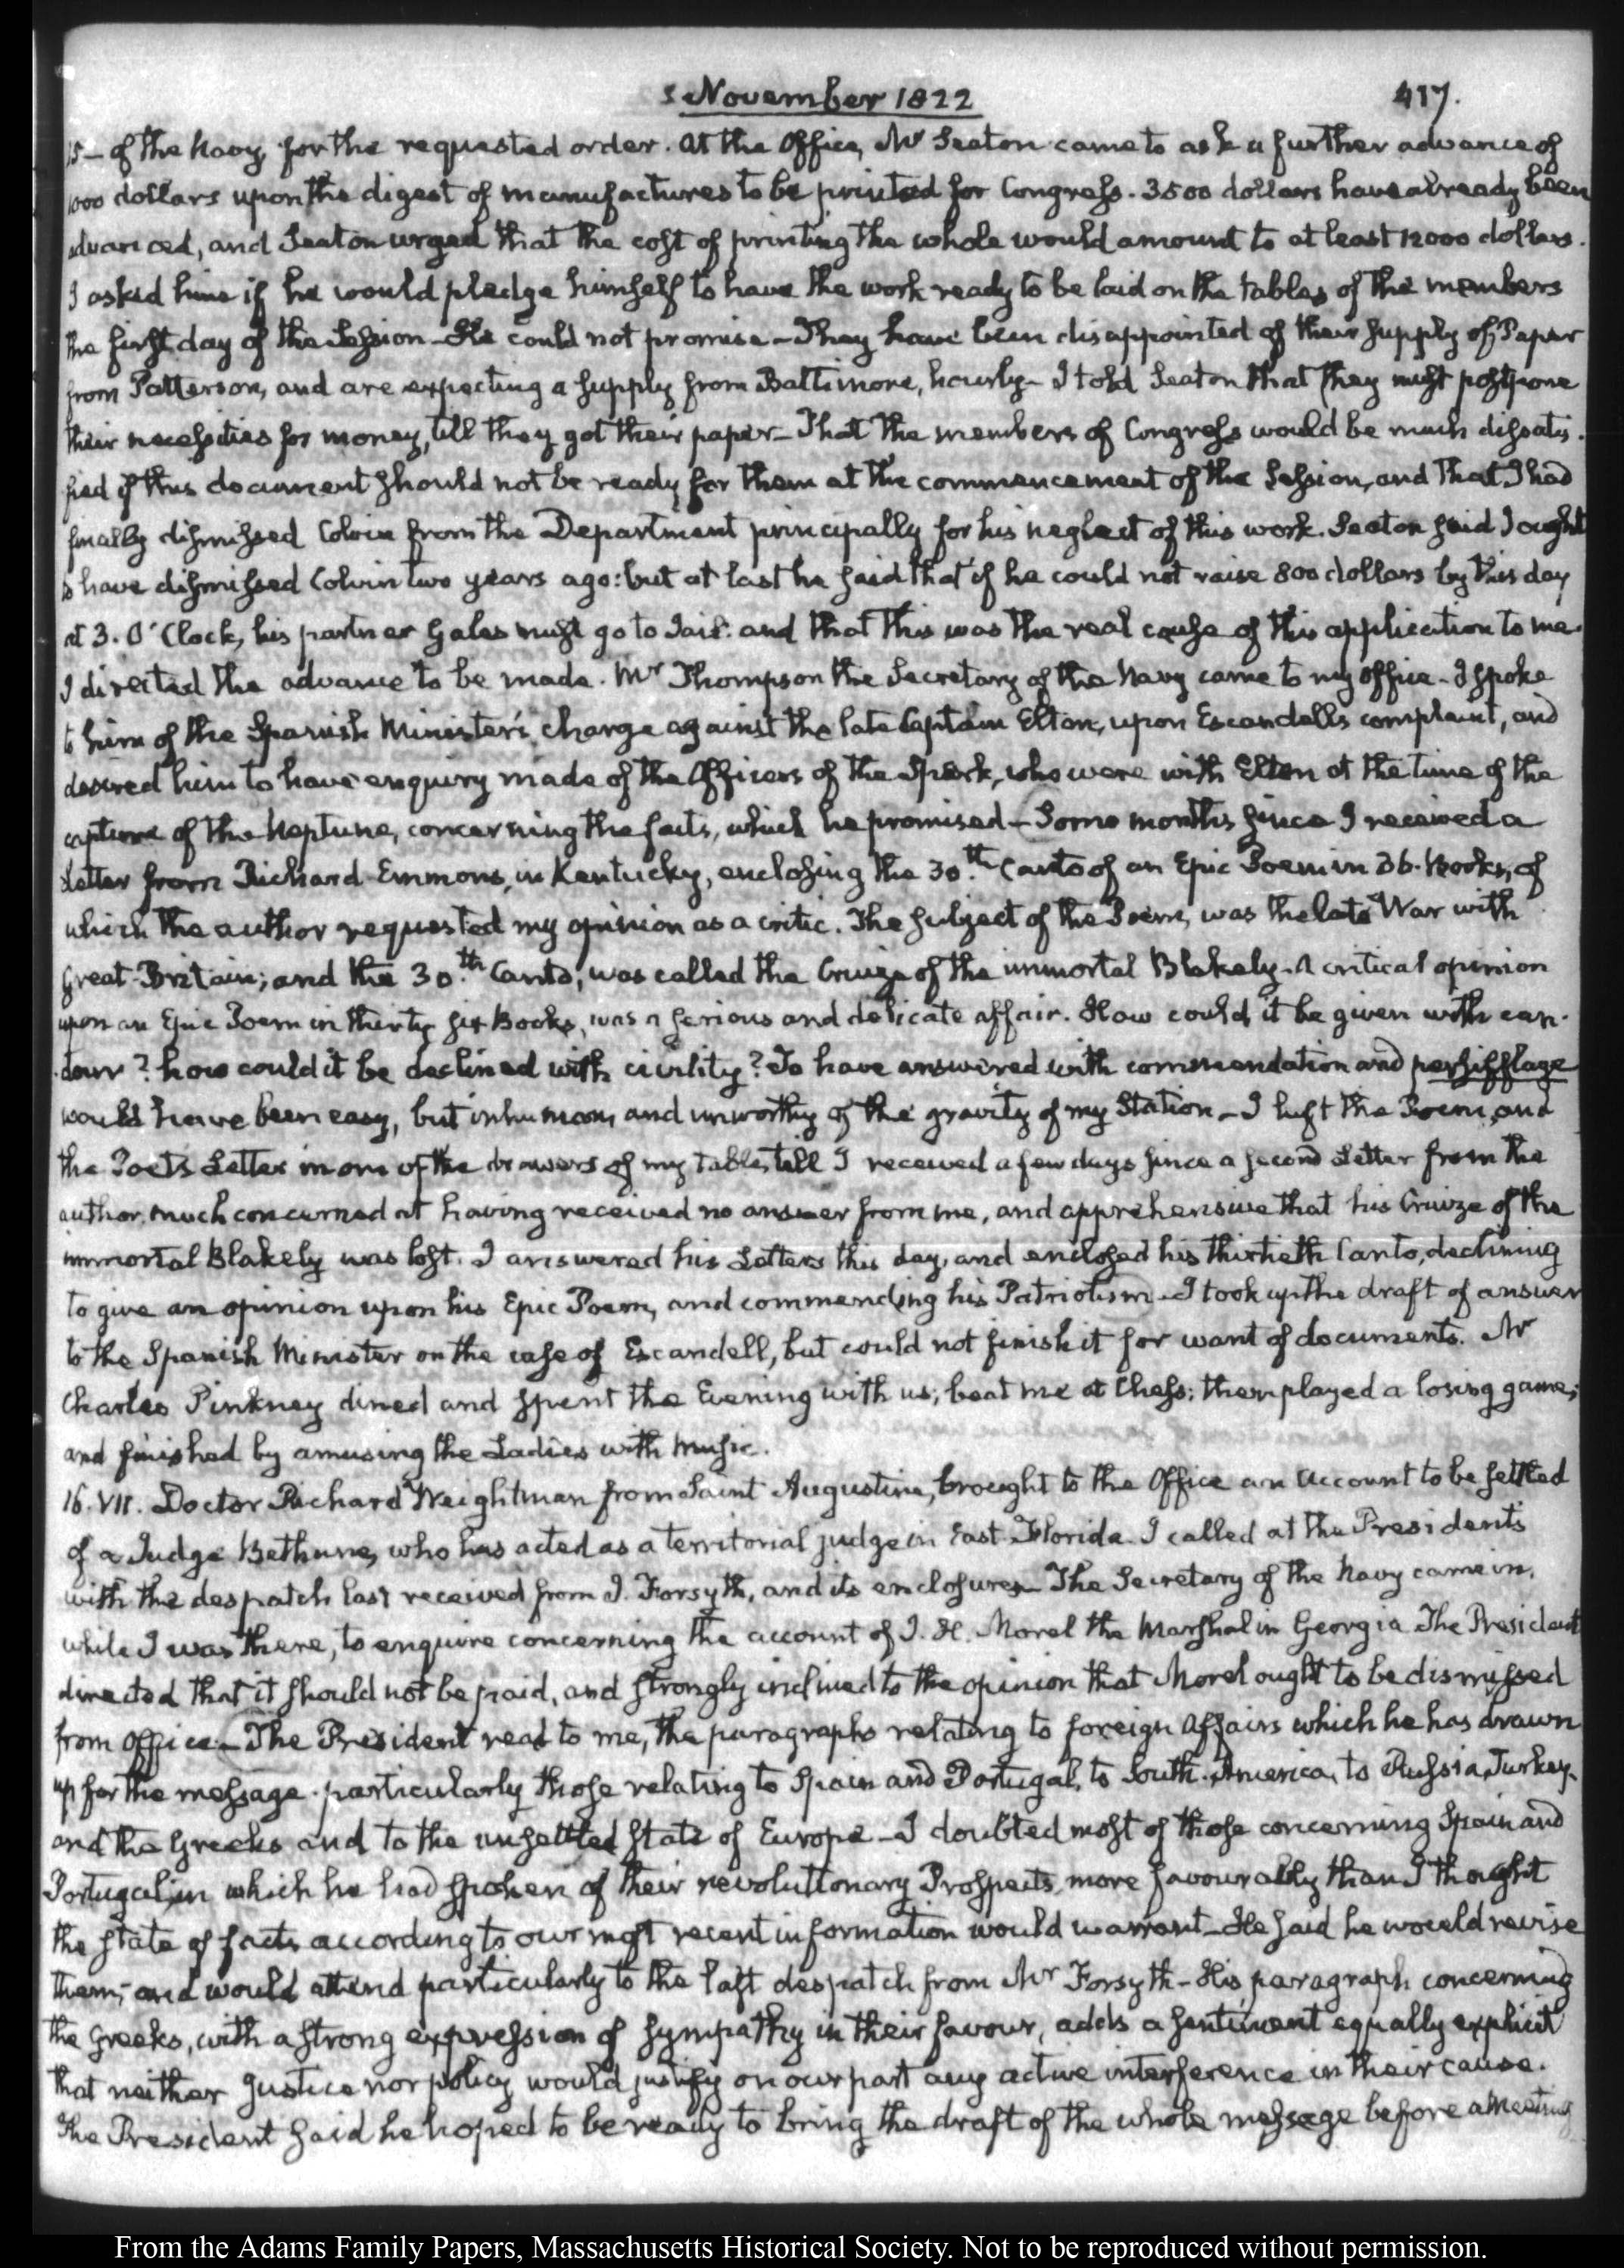 November 1822
417.
15- of the Navy, for the requested order. At the Office, Mr Seaton came to ask a further advance of
1000 dollars upon the digest of manufactures to be printed for Congress. 3500 dollars have already been
advanced, and Seaton urged that the cost of printing the whole would amount to at least 12000 dollars.
I asked him if he would pledge himself to have the work ready to be laid on the tables of the members
the first day of the Session - He could not promise - They have been disappointed of their supply of Paper
from Patterson, and are expecting a supply from Baltimore, hourly - I told Seaton that they must postpone
their necessities for money, till they got their paper - That the members of Congress would be much dissatis-
fied if this document should not be ready for them at the commencement of the Session, and that I had
finally dismissed Colvin from the Department principally for his neglect of this work. Seaton said I ought
to have dismissed Colvin two years ago: but at last he said that if he could not raise 800 dollars by this day
at 3. O'Clock, his partner Gales must go to Jail: and that this was the real cause of this application to me.
I directed the advance to be made. Mr Thompson the Secretary of the Navy came to my office - I spoke
to him of the Spanish Minister's charge against the late Captain Elton, upon Escandell's complaint, and
desired him to have enquiry made of the Officers of the Spark, who were with Elton at the time of the
capture of the Neptune, concerning the facts, which he promised - Some months since I received a
Letter from Richard Emmons, in Kentucky, enclosing the 30.th Canto of an Epic Poem in 36. Books, of
which the author requested my opinion as a critic. The subject of the Poem, was the late War with
Great-Britain; and the 30.th Canto, was called the Cruize of the immortal Blakely. A critical opinion
upon an Epic Poem in thirty six Books, was a serious and delicate affair. How could it be given with can-
dour? how could it be declined with civility? To have answered with commendation and persifflage
would have been easy, but inhuman, and unworthy of the gravity of my Station - I left the Poem, and
the Poet's Letter in one of the drawers of my table, till I received a few days since a second Letter from the
author, much concerned at having received no answer from me, and apprehensive that his Cruize of the
immortal Blakely was lost. I answered his Letters this day, and enclosed his thirtieth Canto, declining
to give an opinion upon his Epic Poem, and commending his Patriotism - I took up the draft of answer
to the Spanish Minister on the case of Escandell, but could not finish it for want of documents. Mr
Charles Pinkney dined and spent the Evening with us; beat me at Chess; then played a losing game;
and finished by amusing the Ladies with Music.
16. VII. Doctor Richard Weightman from Saint Augustine, brought to the Office an Account to be settled
of a Judge Bethune, who has acted as a territorial judge in East-Florida. I called at the President's
with the despatch last received from J. Forsyth, and its enclosures - The Secretary of the Navy came in,
while I was there, to enquire concerning the account of J. H. Morel the Marshal in Georgia. The President
directed that it should not be paid, and strongly inclined to the opinion that Morel ought to be dismissed
from Office - The President read to me, the paragraphs relating to foreign Affairs which he has drawn
up for the message. particularly those relating to Spain and Portugal, to South-America, to Russia, Turkey-
and the Greeks and to the unsettled State of Europe - I doubted most of those concerning Spain and
Portugal, in which he had spoken of their revolutionary Prospects, more favourably than I thought
the state of facts according to our most recent information would warrant - He said he would revise
them; and would attend particularly to the last despatch from Mr Forsyth - His paragraph concerning
the Greeks, with a strong expression of sympathy in their favour, adds a sentiment equally explicit
that neither Justice nor policy would justify on our part any active interference in their cause.
The President said he hoped to be ready to bring the draft of the whole message before a Meeting
From the Adams Family Papers, Massachusetts Historical Society. Not to be reproduced without permission.